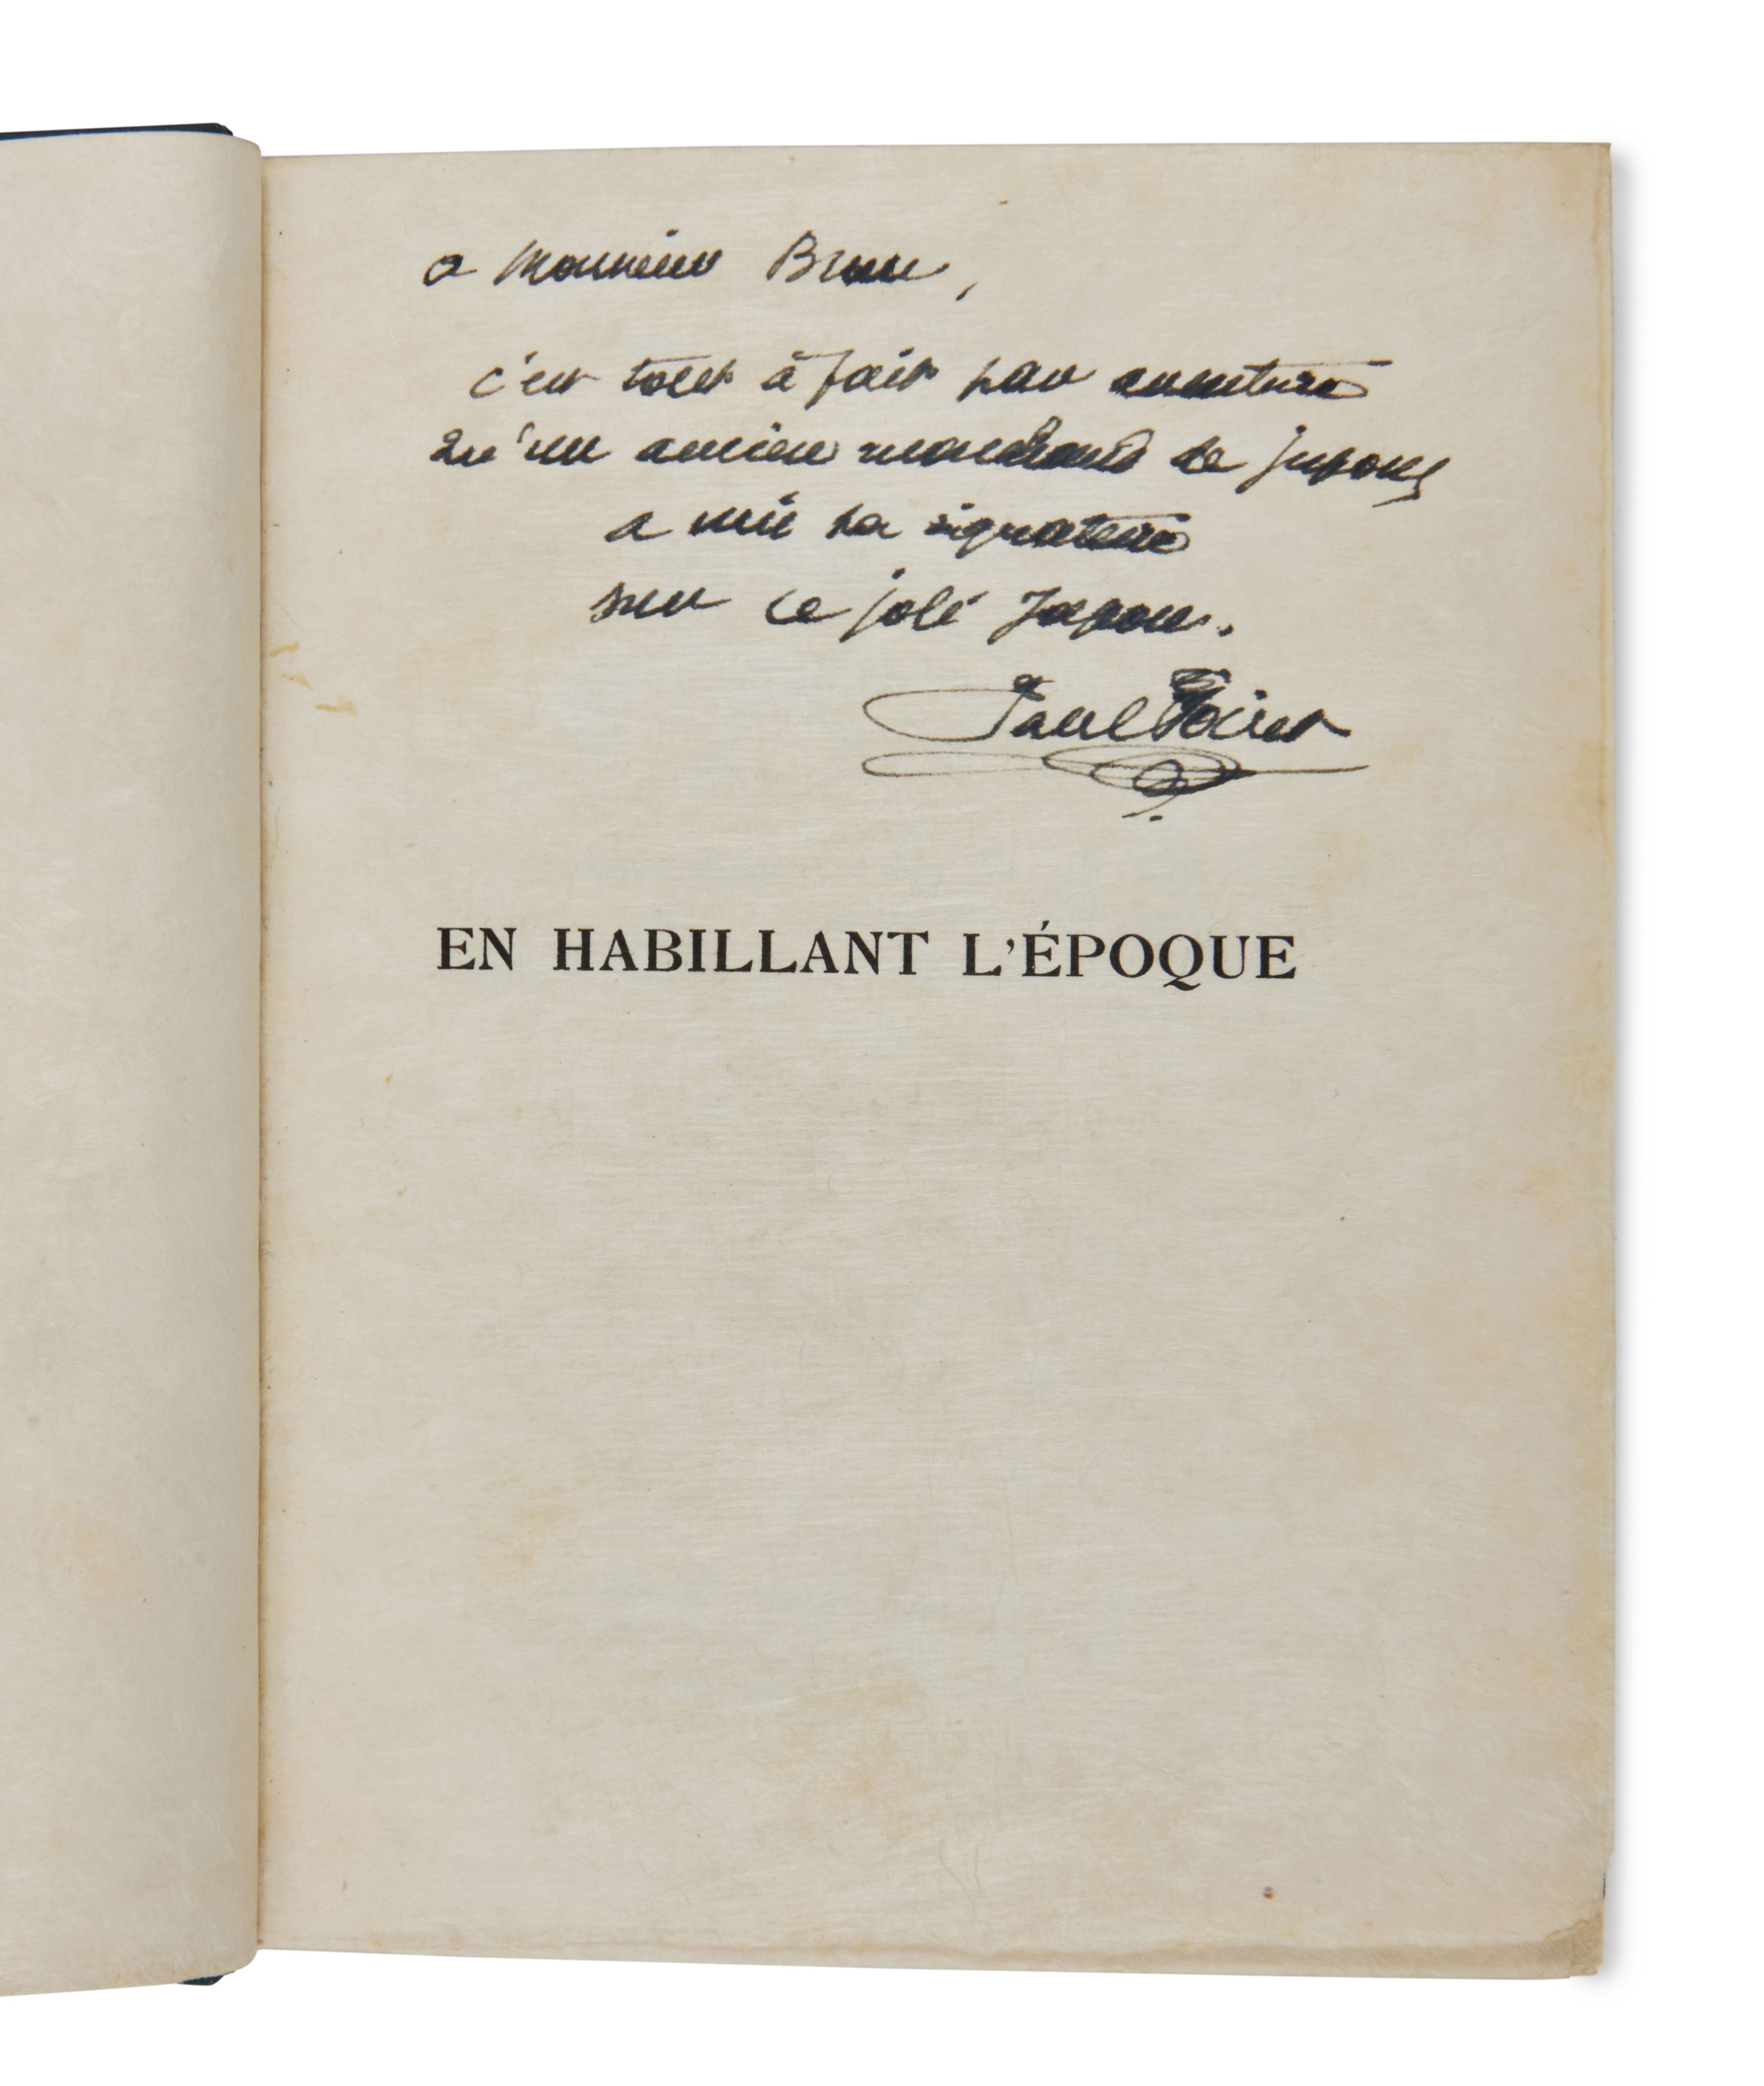 a Monsieur Brun,
c'est tout à fait par aventure
qu'un ancien marchand de jupons
a mis sa signature
sur ce joli Japon.
Paul Poiret
EN HABILLANT L'ÉPOQUE